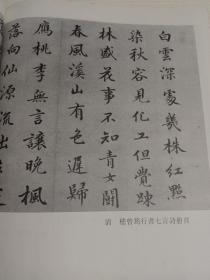 白雲深處幾株紅點
染秋容見化工但覺疎
林盛花事不知青女鬪
春風溪山有色遲歸
鴈桃李無言讓晚楓
落向仙源流出
清 嵇曾筠行書七言詩冊頁